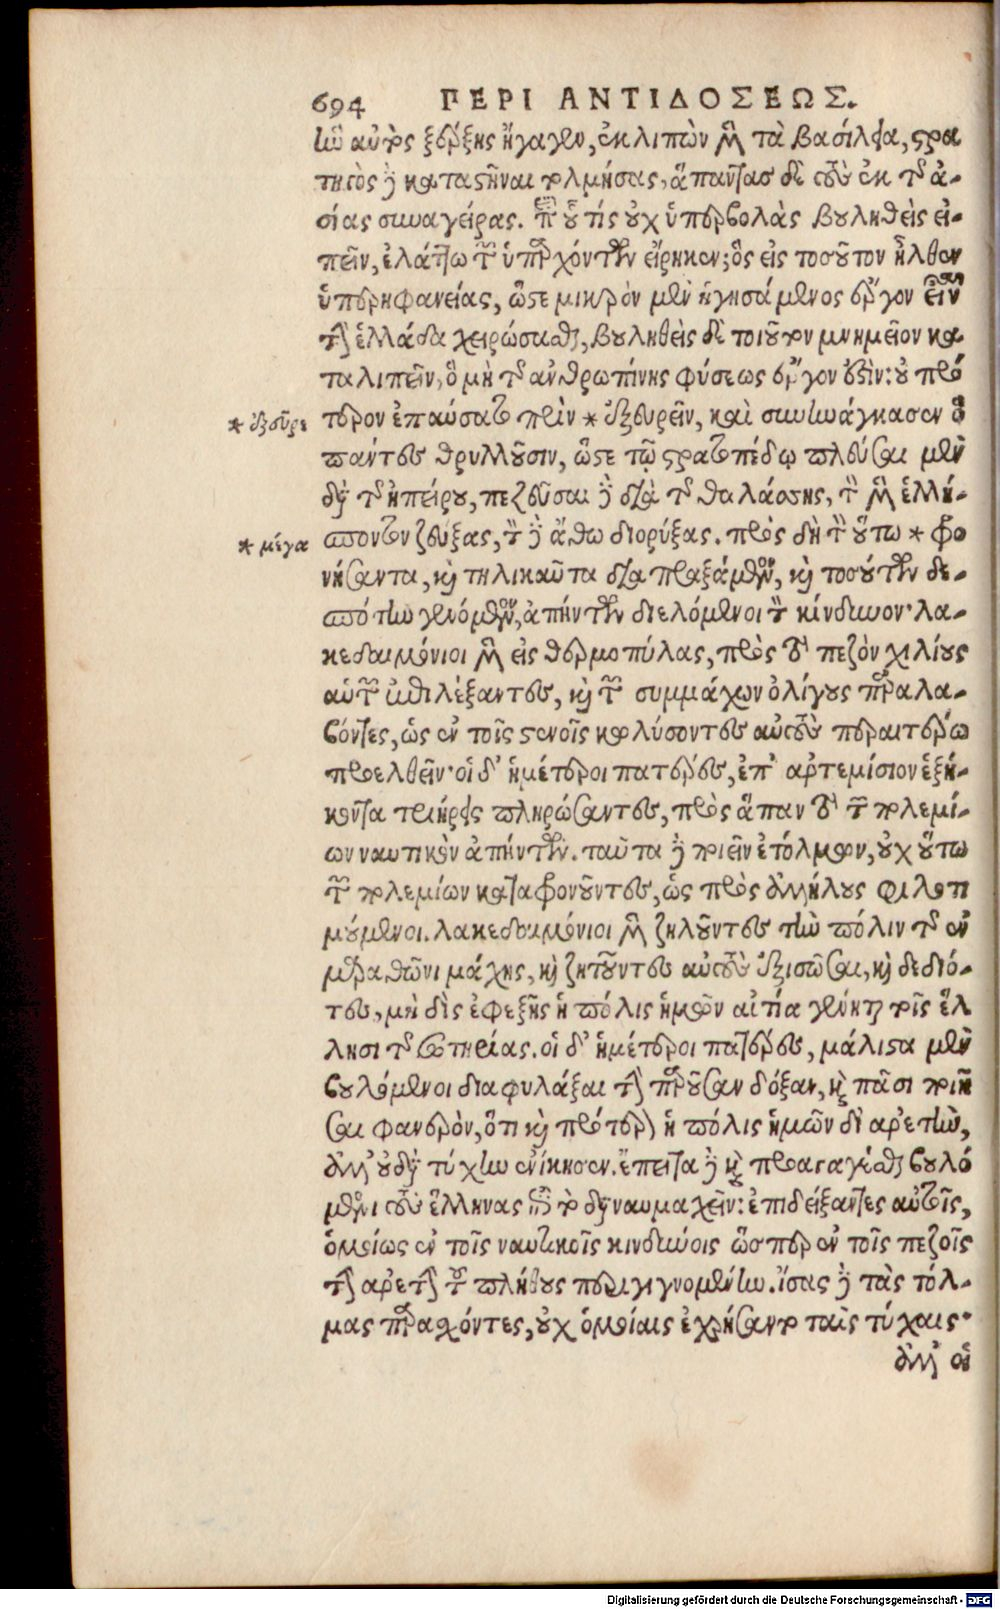 694 ΠΕΡΙ ΑΝΤΙΔΟΣΕΩΣ.
ἣν αὐτὸς ξέρξης ἤγαγεν, ἐκλιπὼν μὲν τὰ βασίλεια, στρα
τηγὸς δὲ καταστῆναι τολμήσας, ἅπαντας δὲ τοὺς ἐκ τῆς ἀ-
σίας συναγείρας. περὶ οὗ τίς οὐχ ὑπερβολὰς βουληθεὶς εἰ-
πεῖν, ἐλάττω τῶν ὑπαρχόντων εἴρηκεν; ὃς εἰς τοσοῦτον ἦλθεν
ὑπερηφανείας, ὥστε μικρὸν μὲν ἡγησάμενος ἔργον εἶναι
τὴν ἑλλάδα χειρώσασθαι, βουληθεὶς δὲ τοιοῦτον μνημεῖον κα
ταλιπεῖν, ὃ μὴ τῆς ἀνθρωπίνης φύσεως ἔργον ἐστὶν: οὐ πρό
τερον ἐπαύσατο πρὶν * ἐξευρεῖν, καὶ συνηνάγκασεν ὃ
πάντες θρυλλοῦσιν, ὥστε τῷ στρατοπέδῳ πλεῦσαι μὲν
διὰ τῆς ἠπείρου, πεζεῦσαι δὲ διὰ τῆς θαλάσσης, τὸν μὲν ἑλλή-
σποντον ζεύξας, τὸν δὲ ἄθω διορύξας. πρὸς δὴ τὸν οὕτω * φρο
νήσαντα, καὶ τηλικαῦτα διαπραξάμενον, καὶ τοσούτων δε-
σπότην γενόμενον, ἀπήντων διελόμενοι τὸν κίνδυνον· λα-
κεδαιμόνιοι μὲν εἰς θερμοπύλας, πρὸς τὸ πεζὸν χιλίους
αὑτῶν ἐπιλέξαντες, καὶ τῶν συμμάχων ὀλίγους παραλα-
βόντες, ὡς ἐν τοῖς στενοῖς κωλύσοντες αὐτοὺς περαιτέρω
προελθεῖν· οἱ δ' ἡμέτεροι πατέρες, ἐπ' ἀρτεμίσιον ἑξή-
κοντα τριήρεις πληρώσαντες, πρὸς ἅπαν τὸ τῶν πολεμί-
ων ναυτικὸν ἀπήντων. ταῦτα δὲ ποιεῖν ἐτόλμων, οὐχ οὕτω
τῶν πολεμίων καταφρονοῦντες, ὡς πρὸς ἀλλήλους φιλοτι
μούμενοι. λακεδαιμόνιοι μὲν ζηλοῦντες τὴν πόλιν τῆς ἐν
μαραθῶνι μάχης, καὶ ζητοῦντες αὑτοὺς ἐξισῶσαι, καὶ δεδιό-
τες, μὴ δὶς ἐφεξῆς ἡ πόλις ἡμῶν αἰτία γένηται τοῖς ἕλ
λησι τῆς σωτηρίας. οἱ δ' ἡμέτεροι πατέρες, μάλιστα μὲν
βουλόμενοι διαφυλάξαι τὴν παροῦσαν δόξαν, καὶ πᾶσι ποιῆ
σαι φανερὸν, ὅτι καὶ πρότερον ἡ πόλις ἡμῶν δι' ἀρετὴν,
ἀλλ' οὐ διὰ τύχην ἐνίκησεν. ἔπειτα δὲ καὶ προαγαγέσθαι βουλό
μενοι τοὺς ἕλληνας ἐπὶ τὸ διαναυμαχεῖν: ἐπιδείξαντες αὐτοῖς,
ὁμοίως ἐν τοῖς ναυτικοῖς κινδύνοις ὥσπερ ἐν τοῖς πεζοῖς
τὴν ἀρετὴν τοῦ πλήθους περιγιγνομένην. ἴσας δὲ τὰς τόλ-
μας παρασχόντες, οὐχ ὁμοίαις ἐχρήσαντο ταῖς τύχαις·
ἀλλ' οἱ
* ἐξεῦρε
* μέγα
Digitalisierung gefördert durch die Deutsche Forschungsgemeinschaft - DFG